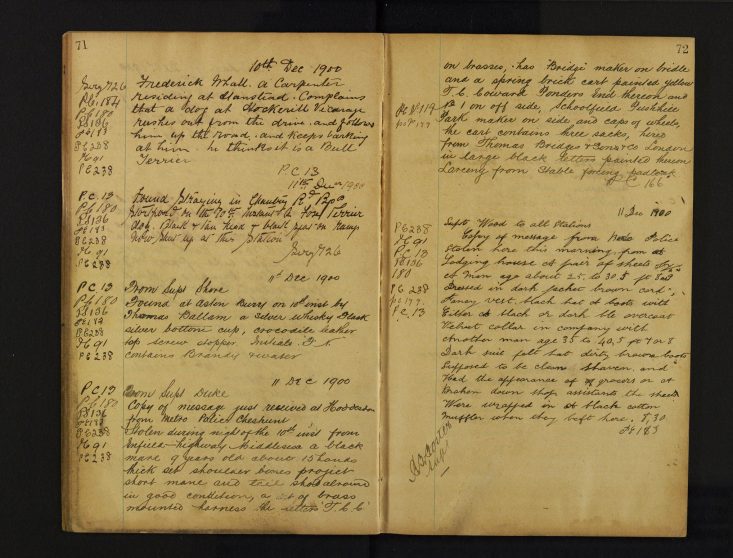 71
10th Dec 1900
Frederick Whall. a Carpenter
residing at Stanstead. Complains
that a dog at Hockerill Vicarage
rushes out from the drive and follows
him up the road, and keeps barking
at him. he thinks it is a Bull
Terrier
PC 13
11th Decr 1900
Found Straying in Chantry Rd Bps
Stortford on the 10th Instant a Fox Terrier
dog. Black & tan head & black spot on rump
Now shut up at this Station
11th Dec 1900
From Supt Shore
Found at Aston Bury on 10th inst by
Thomas Hallam a silver whisky Flask
silver bottom cup, crocodile leather
top screw stopper. Initials
contains Brandy & water
11 Dec 1900
From Supt Duke
Copy of message just received at Hoddesdon
from Metro Police Cheshunt
Stolen during night of the 10th inst from
Enfield Highway Middlesex a black
mare 9 years old about 15 hands
thick set shoulder bones project
short mane and tail shod all round
in good condition, a set of brass
mounted harness the letters T.C.C
PC 13
PC 180
PS 136
PC 183
PC 238
91
PC 238
72
on brasses, has Bridge maker on bridle
and a spring brick cart painted yellow
T.C. Coward Ponders End thereon and
No 1 on off side, Schoolfield Rushields
Park maker on side and caps of wheels,
the cart contains three sacks, hired
from Thomas Bridges & Cons & Co London
in large black letters painted thereon
Larceny from Stable forcing padlock
PC 166
11 Dec 1900
Supt Wood to all Stations
Copy of message from Police
Stolen here this morning from a
Lodging house a pair of sheets by
a man age about 25 to 30 5 ft 3 or 4
Dressed in dark jacket brown cord
Fancy vest, black hat & boots with
Either a black or dark ble overcoat
Velvet collar in company with
Another man age 35 to 40, 5 ft 7 or 8
Dark suit felt hat dirty brown boots
Supposed to be clean shaven, and
Had the appearance of grocers or a
broken down shop assistants the sheets
Were wrapped in a black cotton
muffler when they left here, 8,30
PC 183
PC 238
91
PC 13
PS 136
180
PC 238
PC 177
PC 13